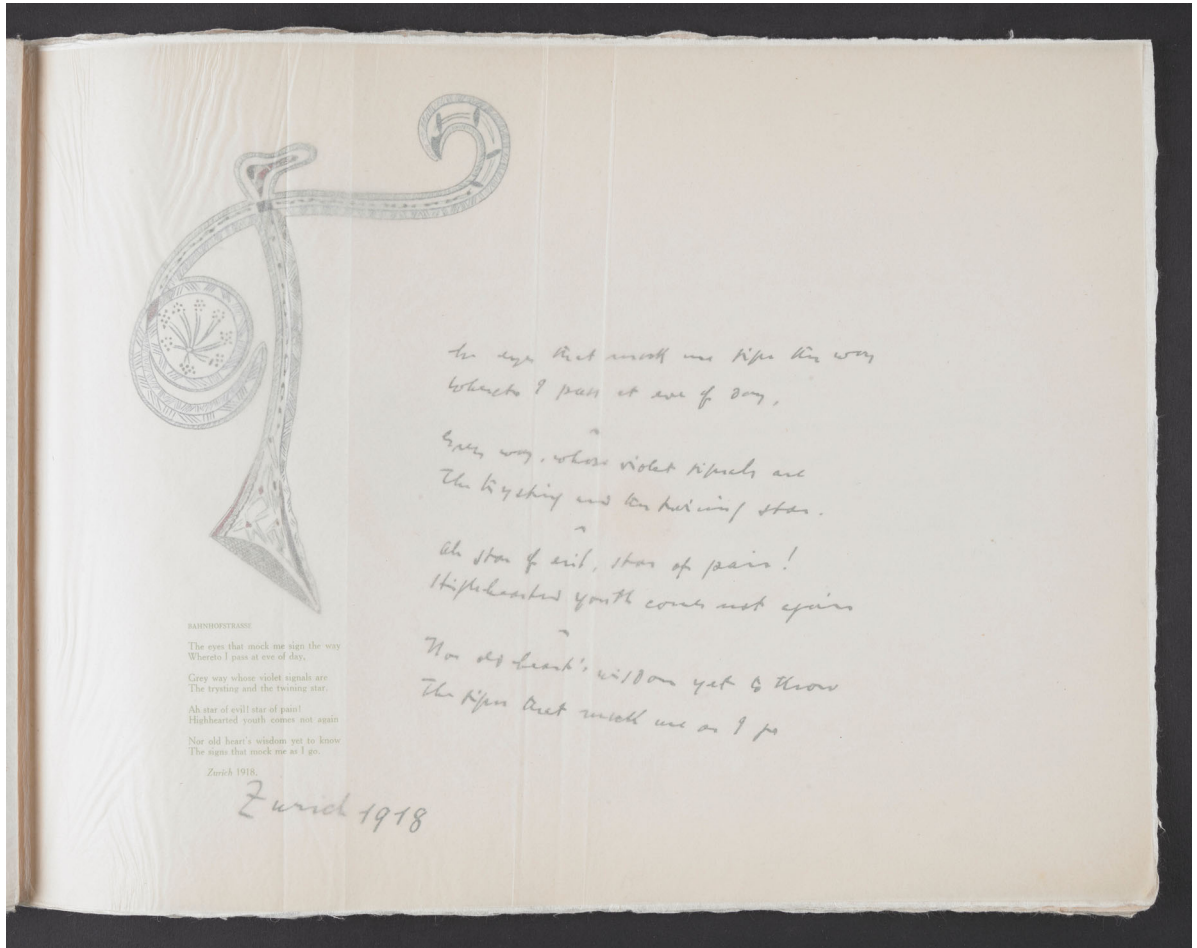 he eyes that mock me sign the way
Whereto I pass at eve of day,
Grey way, whose violet signals are
The trysting and the twining star.
Ah star of evil, star of pain!
Highhearted youth comes not again
Nor old heart's wisdom yet to know
The signs that mock me as I go
BAHNHOFSTRASSE
The eyes that mock me sign the way
Whereto I pass at eve of day,
Grey way whose violet signals are
The trysting and the twining star.
Ah star of evil! star of pain!
Highhearted youth comes not again
Nor old heart's wisdom yet to know
The signs that mock me as I go.
Zurich 1918.
Zurich 1918